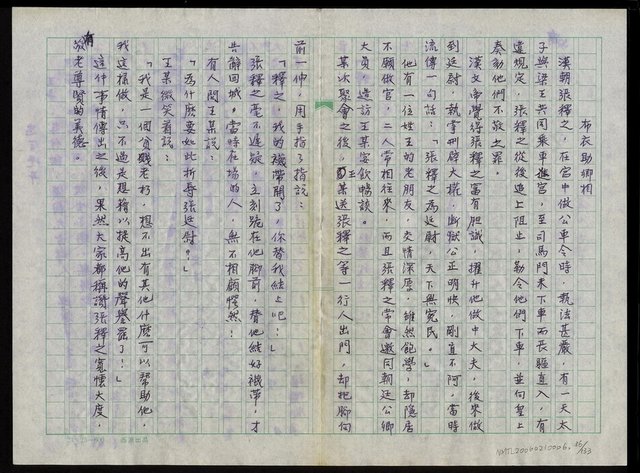 布衣助卿相
漢朝張釋之，在宮中做公車令時，執法甚嚴，有一天太
子與梁王共同乘車進宮，至司馬門未下車而長驅直入，有
違規定，張釋之從後追上阻止，勒令他們下車，並向皇上
奏劾他們不敬之罪。
漢文帝覺得張釋之富有胆識，擢升他做中大夫，後來做
到廷尉，執掌刑辟大權，斷獄公正明快，剛直不阿，當時
流傳一句話：「張釋之為廷尉，天下無冤民。」
他有一位姓王的老朋友，交情深厚，雖然飽學，却隱居
不願做官，二人常相往來，而且張釋之常會邀同朝廷公卿
大員，造訪王某家飲暢談。
某次聚會之後，王某送張釋之等一行人出門，却把腳向
前一伸，用手指了指說：
「釋之，我的襪帶開了，你替我結上吧！」
張釋之毫不遲疑，立刻跪在他腳前，替他結好襪帶，才
告辭回城。當時在場的人，無不相顧愕然！
有人問王某說：
「為什麼要如此折辱張廷尉？」
王某微笑着說：
「我是一個貧賤老朽，想不出有其他什麼可以幫助他，
我這樣做，只不過是想藉以提高他的聲譽罷了！」
這件事情傳出之後，果然大家都稱讚張釋之寬懷大度，
有敬老尊賢的美德。
NMTL20060210006,
86/133